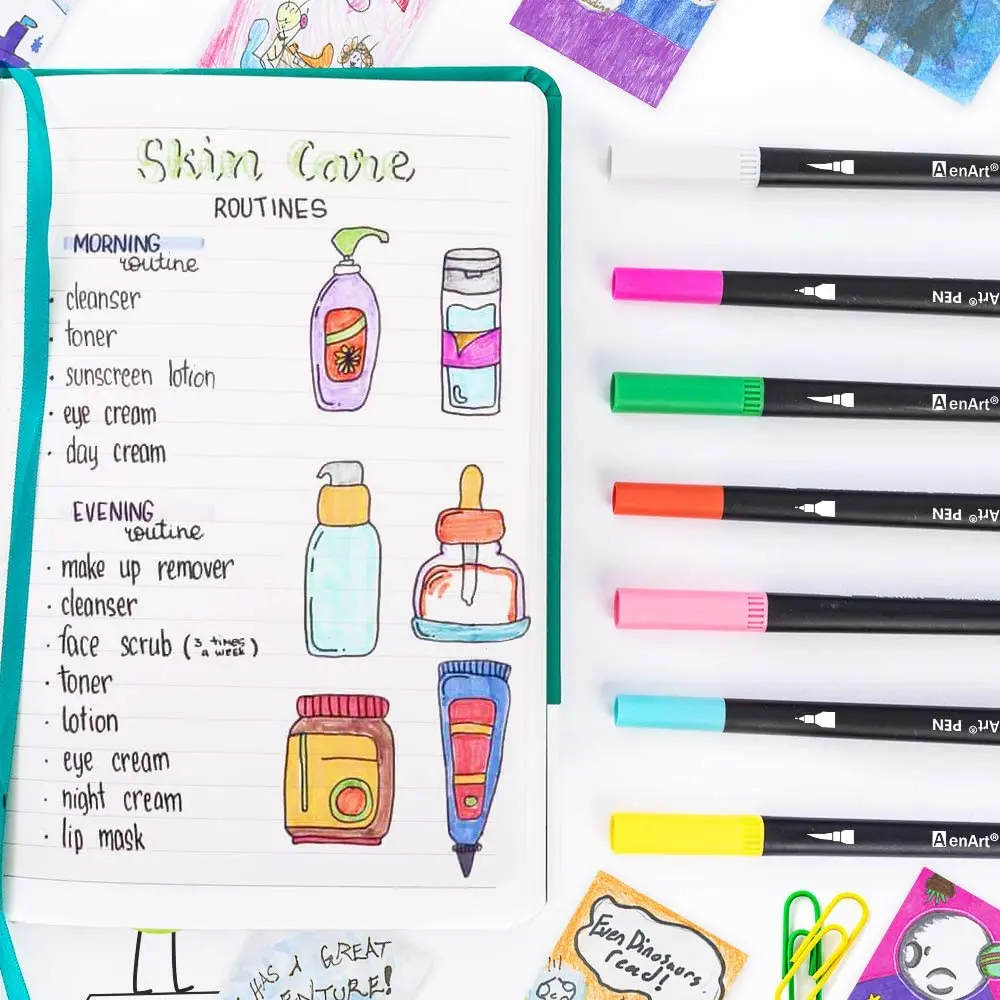 Skin Care
ROUTINES
MORNING
routine
• cleanser
• toner
• sunscreen lotion
• eye cream
• day cream
EVENING
routine
• make up remover
• cleanser
• face scrub (3 times
a week)
• toner
• lotion
• eye cream
• night cream
• lip mask
AenArt®
Art® PEN
AenArt®
Art® PEN
Art® PEN
AenArt®
HAS A GREAT
Even Dinosaurs
read!